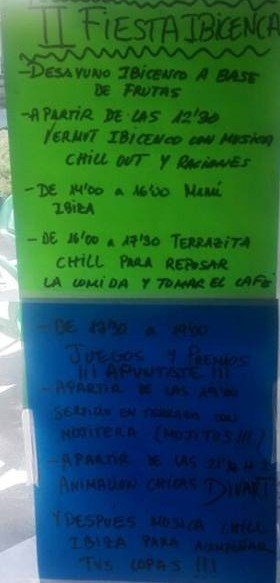 II FIESTA IBICENCA
- DESAYUNO IBICENCO A BASE
DE FRUTAS
- A PARTIR DE LAS 12'30
VERMUT IBICENCO CON MUSICA
CHILL OUT Y RACIONES
- DE 14'00 A 16'00 MENÚ
IBIZA
- DE 16'00 A 17'30 TERRAZITA
CHILL PARA REPOSAR
LA COMIDA Y TOMAR EL CAFE
- DE 17'30 A 19'00
JUEGOS Y PREMIOS
¡¡¡ APUNTATE !!!
- A PARTIR DE LAS 19'00
SERVIDO EN TERRAZA CON
MOJITERA (MOJITOS!!!)
- A PARTIR DE LAS
ANIMACION CHICAS
Y DESPUES MUSICA CHILL
IBIZA PARA ACOMPAÑAR
TUS COPAS !!!